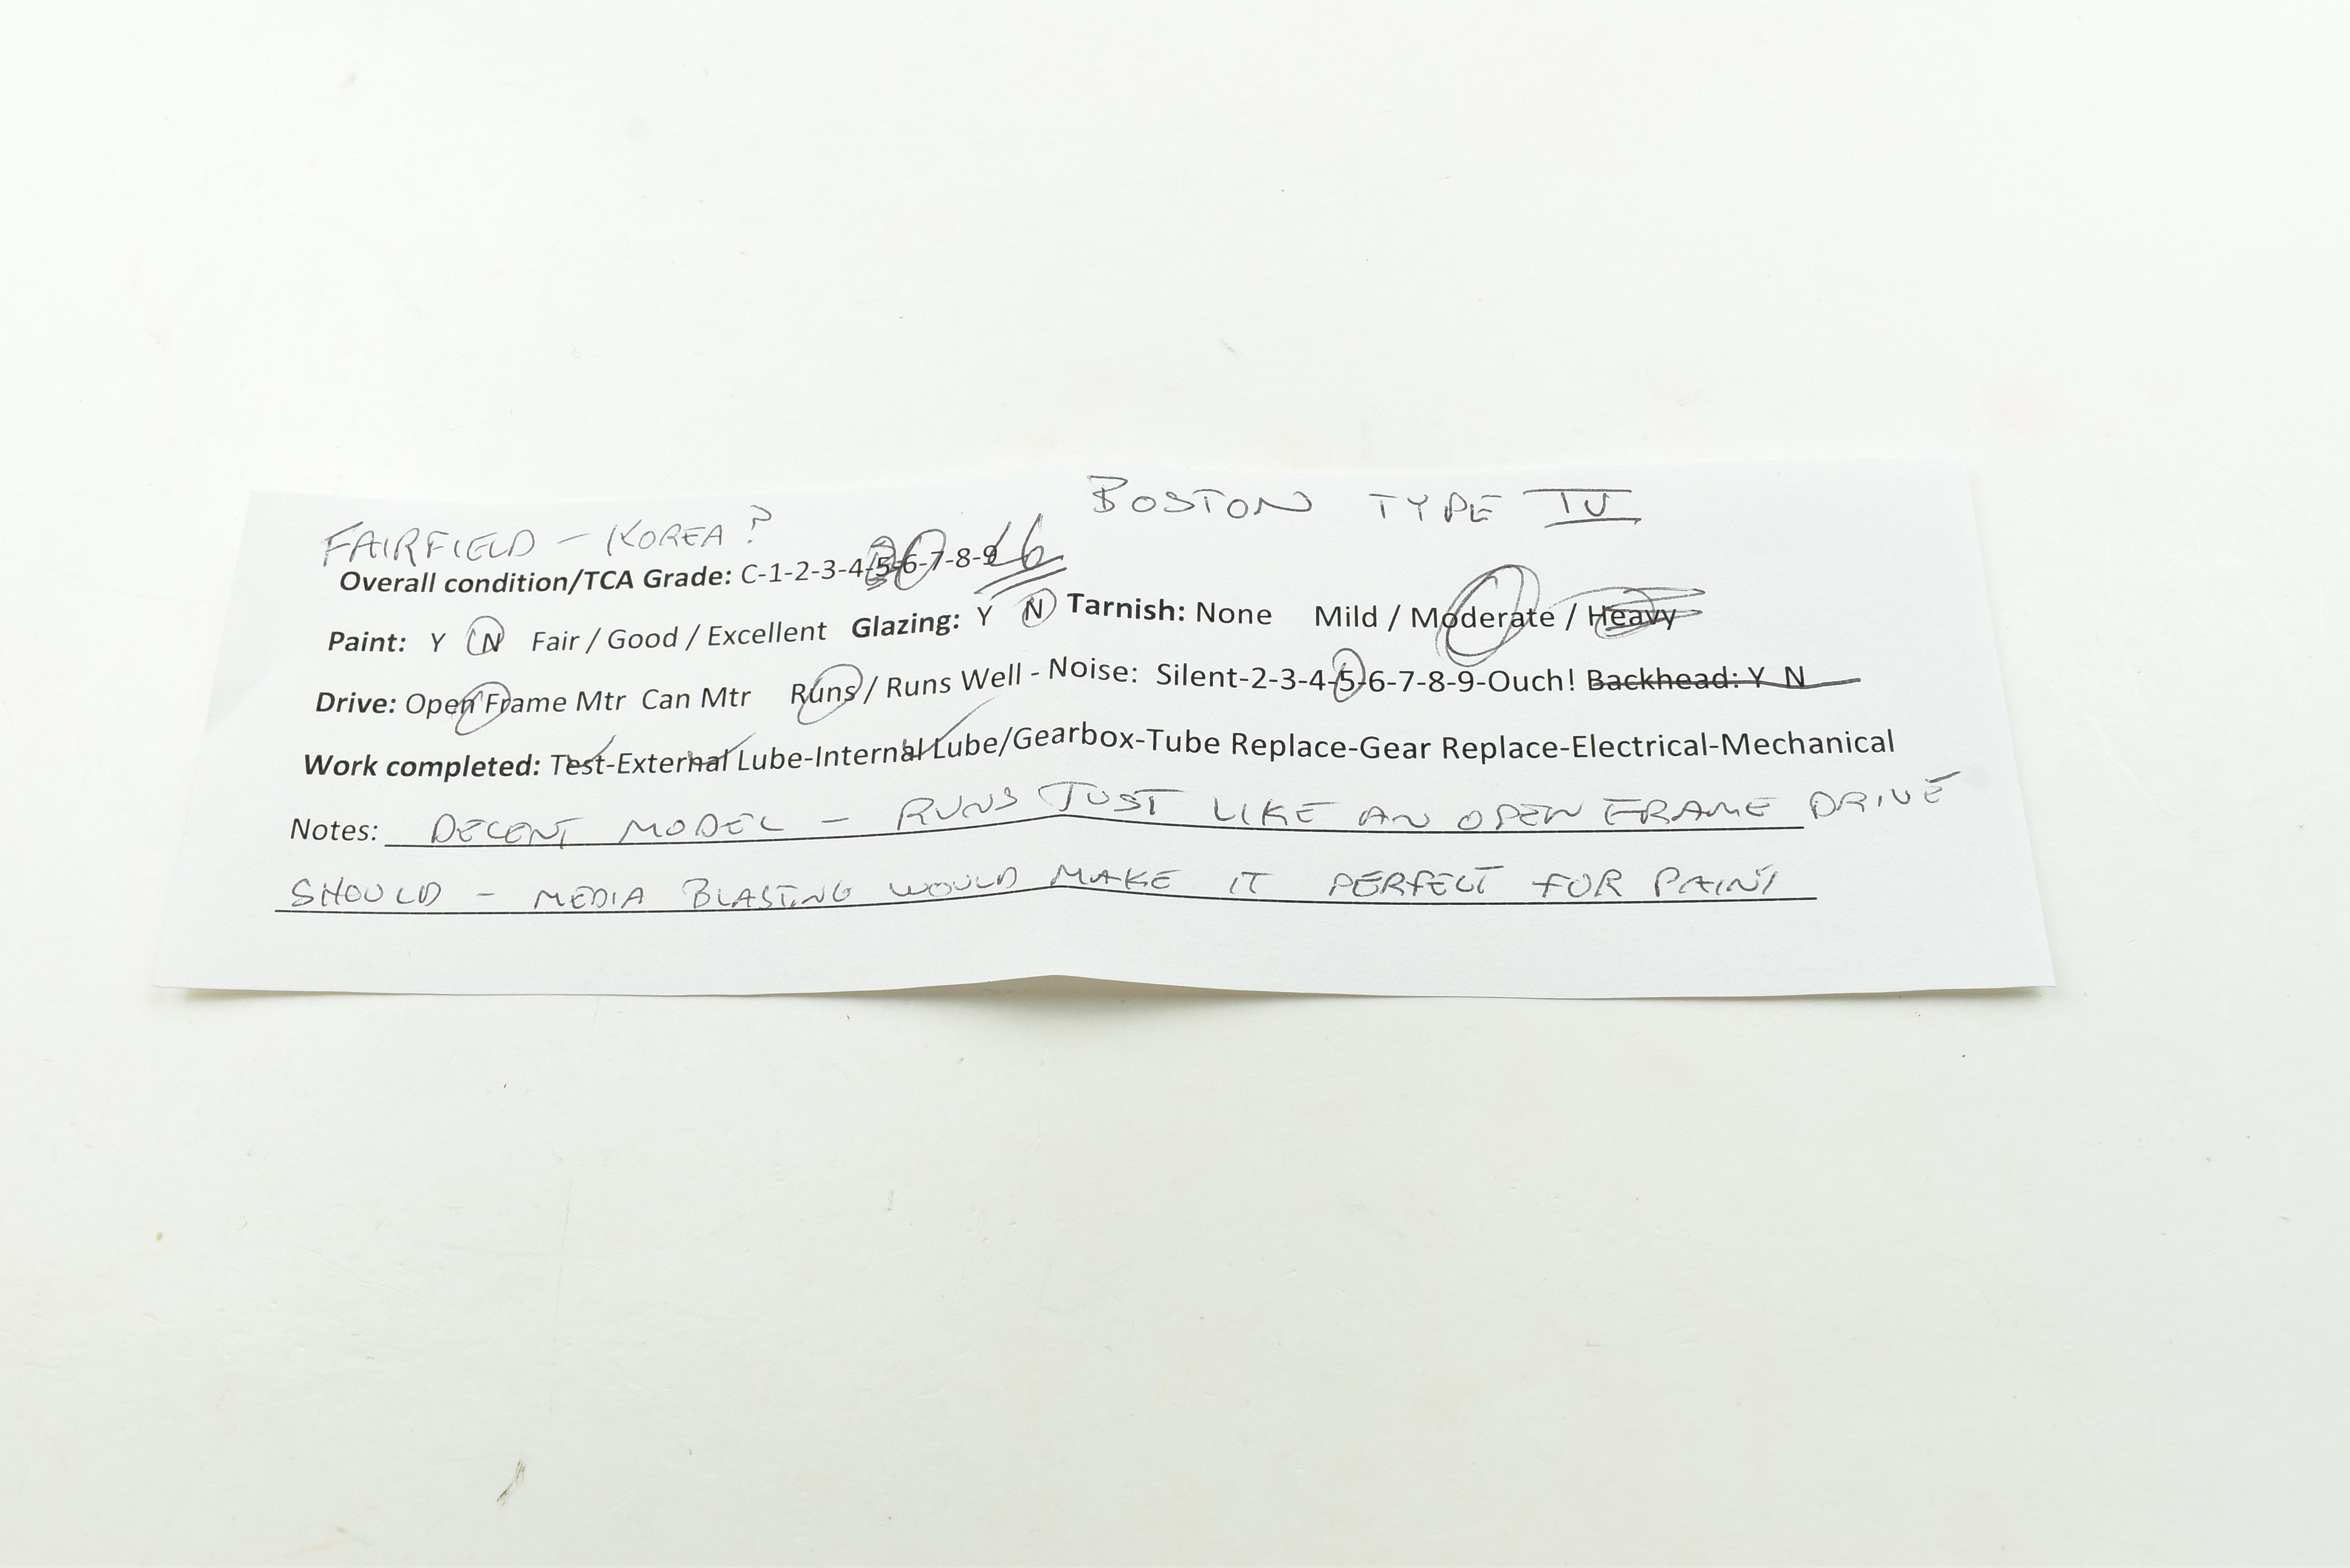 BOSTON TYPE IV
FAIRFIELD - KOREA?
Overall condition/TCA Grade: C-1-2-3-4-5-6-7-8-9 6
Paint: Y N Fair / Good / Excellent Glazing: Y N Tarnish: None Mild / Moderate / Heavy
Drive: Open Frame Mtr Can Mtr Runs / Runs Well - Noise: Silent-2-3-4-5-6-7-8-9-Ouch! Backhead: Y N
Work completed: Test-External Lube-Internal Lube/Gearbox-Tube Replace-Gear Replace-Electrical-Mechanical
Notes: DECENT MODEL - RUNS JUST LIKE AN OPEN FRAME DRIVE
SHOULD - MEDIA BLASTING WOULD MAKE IT PERFECT FOR PAINT